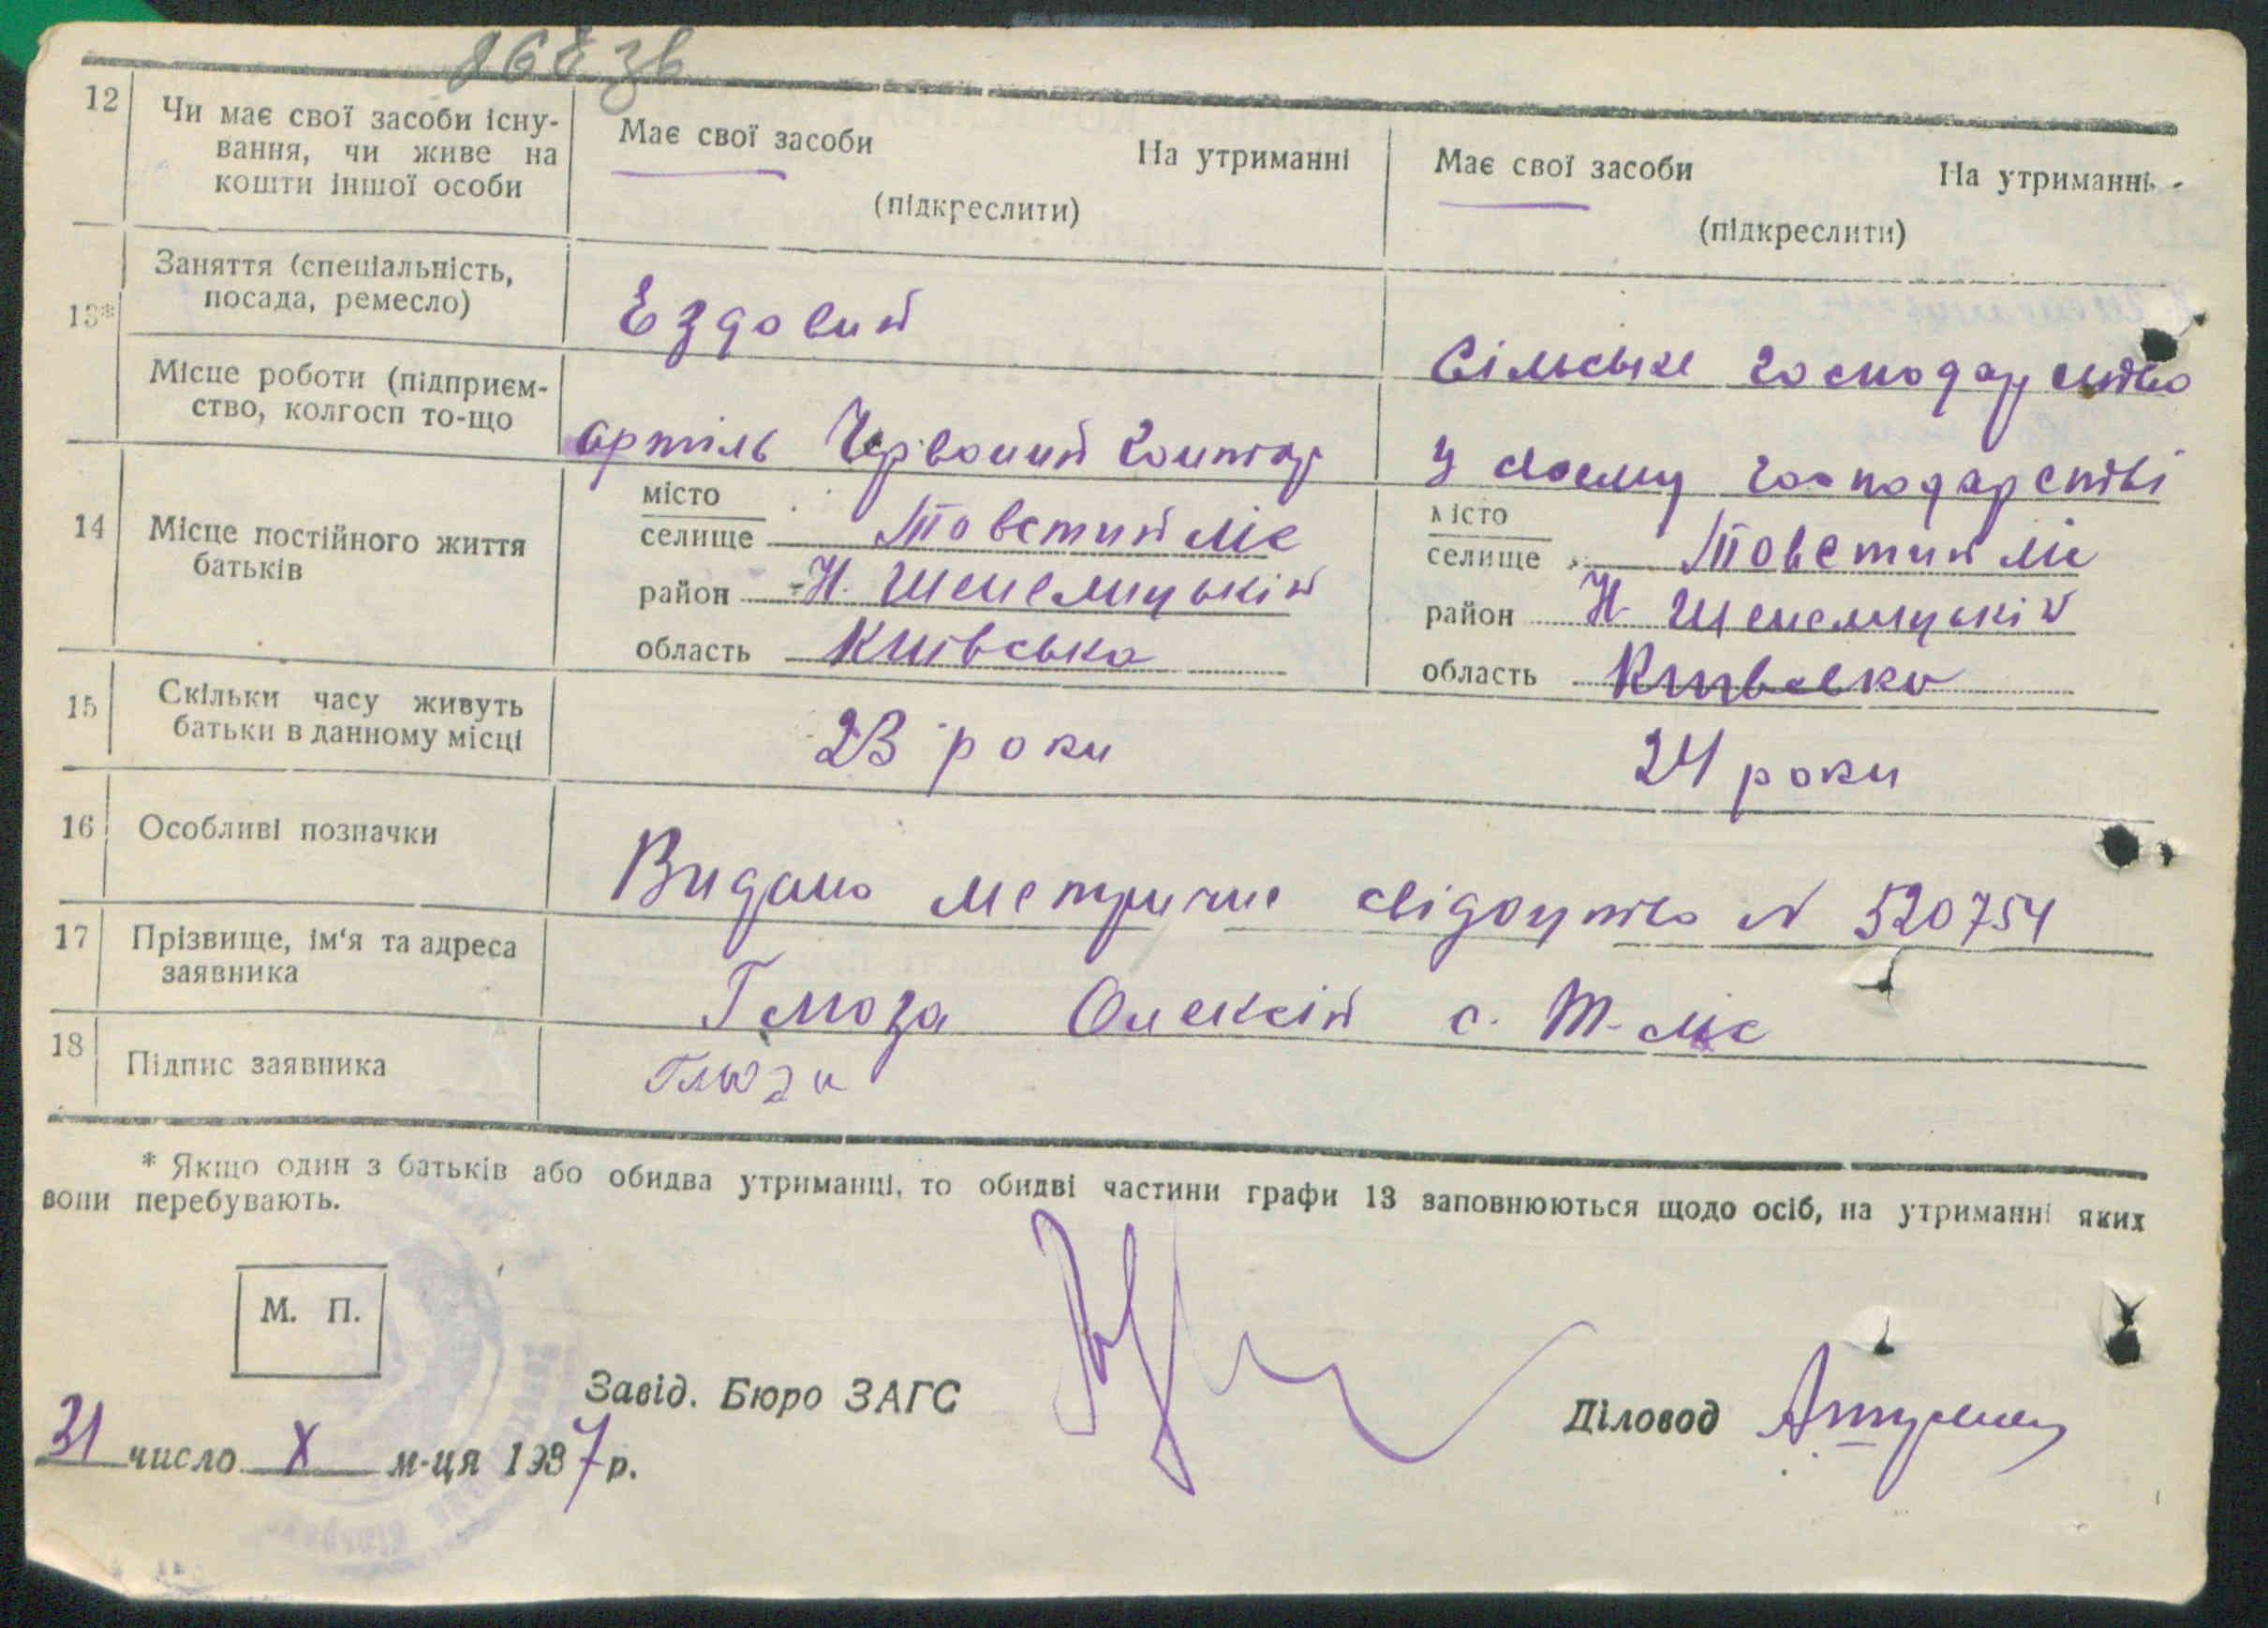 868 зв
12 Чи має свої засоби існу-
вання, чи живе на
кошти іншої особи
Має свої засоби На утриманні
(підкреслити)
Має свої засоби На утриманні
(підкреслити)
13*
Заняття (спеціальність,
посада, ремесло)
Ездовий
Сільське господарство
Місце роботи (підприєм-
ство, колгосп то-що
артіль Червоний
у своему господарстві
14 Місце постійного життя
батьків
місто
селище Товстий Ліс
район Н. Шепелицький
область Київська
місто
селище Товстий Ліс
район Н. Шепелицький
область Київська
15 Скільки часу живуть
батьки в данному місці
23 роки
24 роки
16 Особливі позначки
Видано метричне свідоцтво N 520754
17 Прізвище, ім‘я та адреса
заявника
Глюза Олексій с. Т-Ліс
18 Підпис заявника
Глюза
* Якщо один з батьків або обидва утриманці, то обидві частини графи 13 заповнюються щодо осіб, на утриманні яких
вони перебувають.
М. П.
Завід. Бюро ЗАГС
Діловод
31 число X м-ця 1937 р.